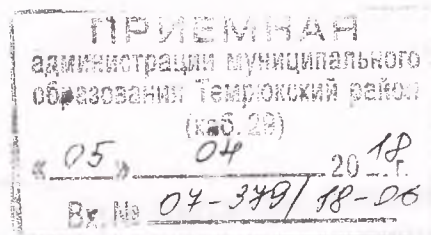 ПРИЕМНАЯ
администрации муниципального
образования Темрюкский район
(каб. 29)
« 05 » 04 2018 г.
Вх. № 07-379/18-06